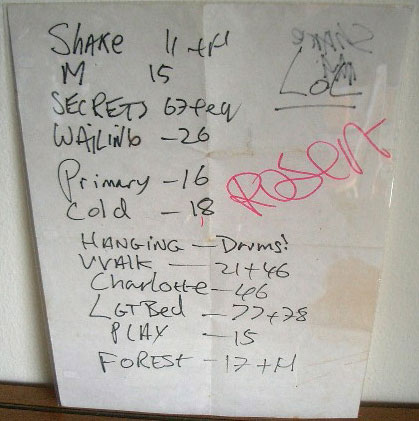 SHAKE 11 + M
M 15
LOL
SECRETS 67 + eq
WAILING - 26
Primary - 16
ROBERT
Cold - 18
HANGING - Drums!
WALK - 21 + 46
Charlotte - 46
LGTBed - 77 + 78
PLAY - 15
FOREST - 17 + M